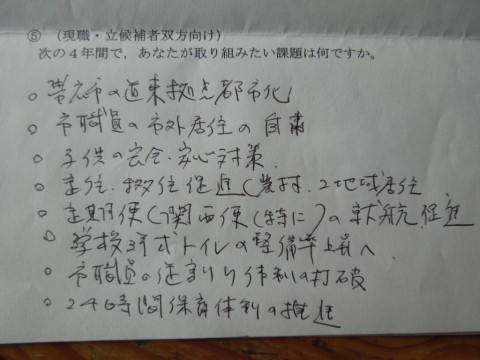 ⑤ (現職・立候補者双方向け)
次の4年間で，あなたが取り組みたい課題は何ですか。
○ 帯広市の道東拠点都市化
○ 市職員の市外居住の自粛
○ 子供の安全・安心対策
○ 定住・移住促進(農村・2地域居住
○ 定期便(関西便(特に)の就航促進
○ 学校洋式トイレの整備率上昇へ
○ 市職員の縦割り体制の打破
○ 24時間保育体制の推進